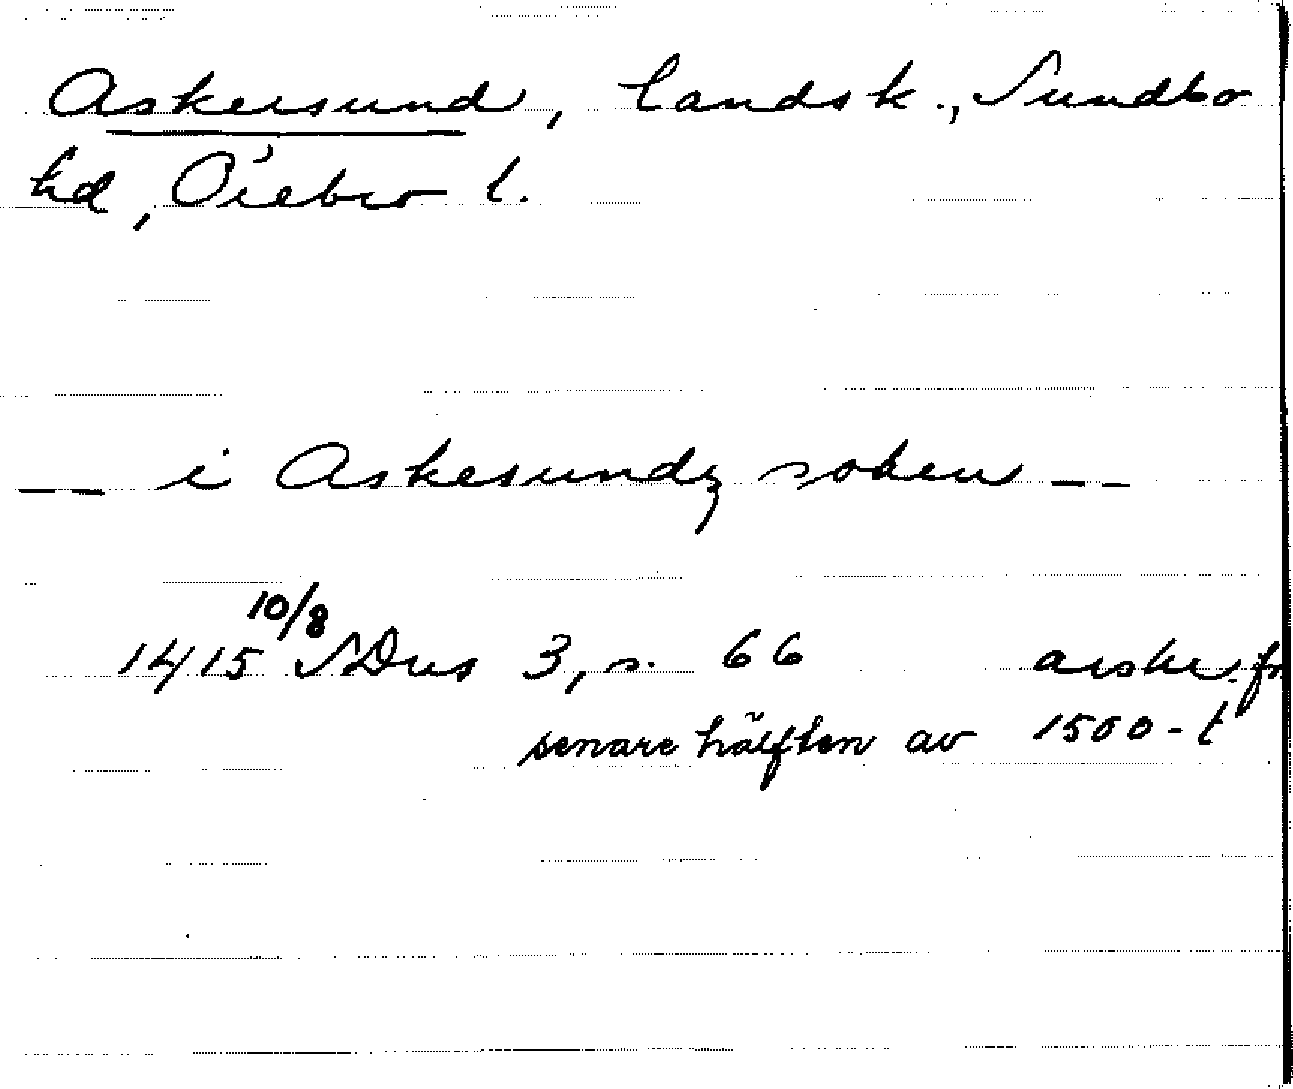 Askersund, landsk., Sundbo
hd, Örebro l.
— i Askesundz soken — —
1415 10/8 SDns 3, s. 66 avskr. fr
senare hälften av 1500-t